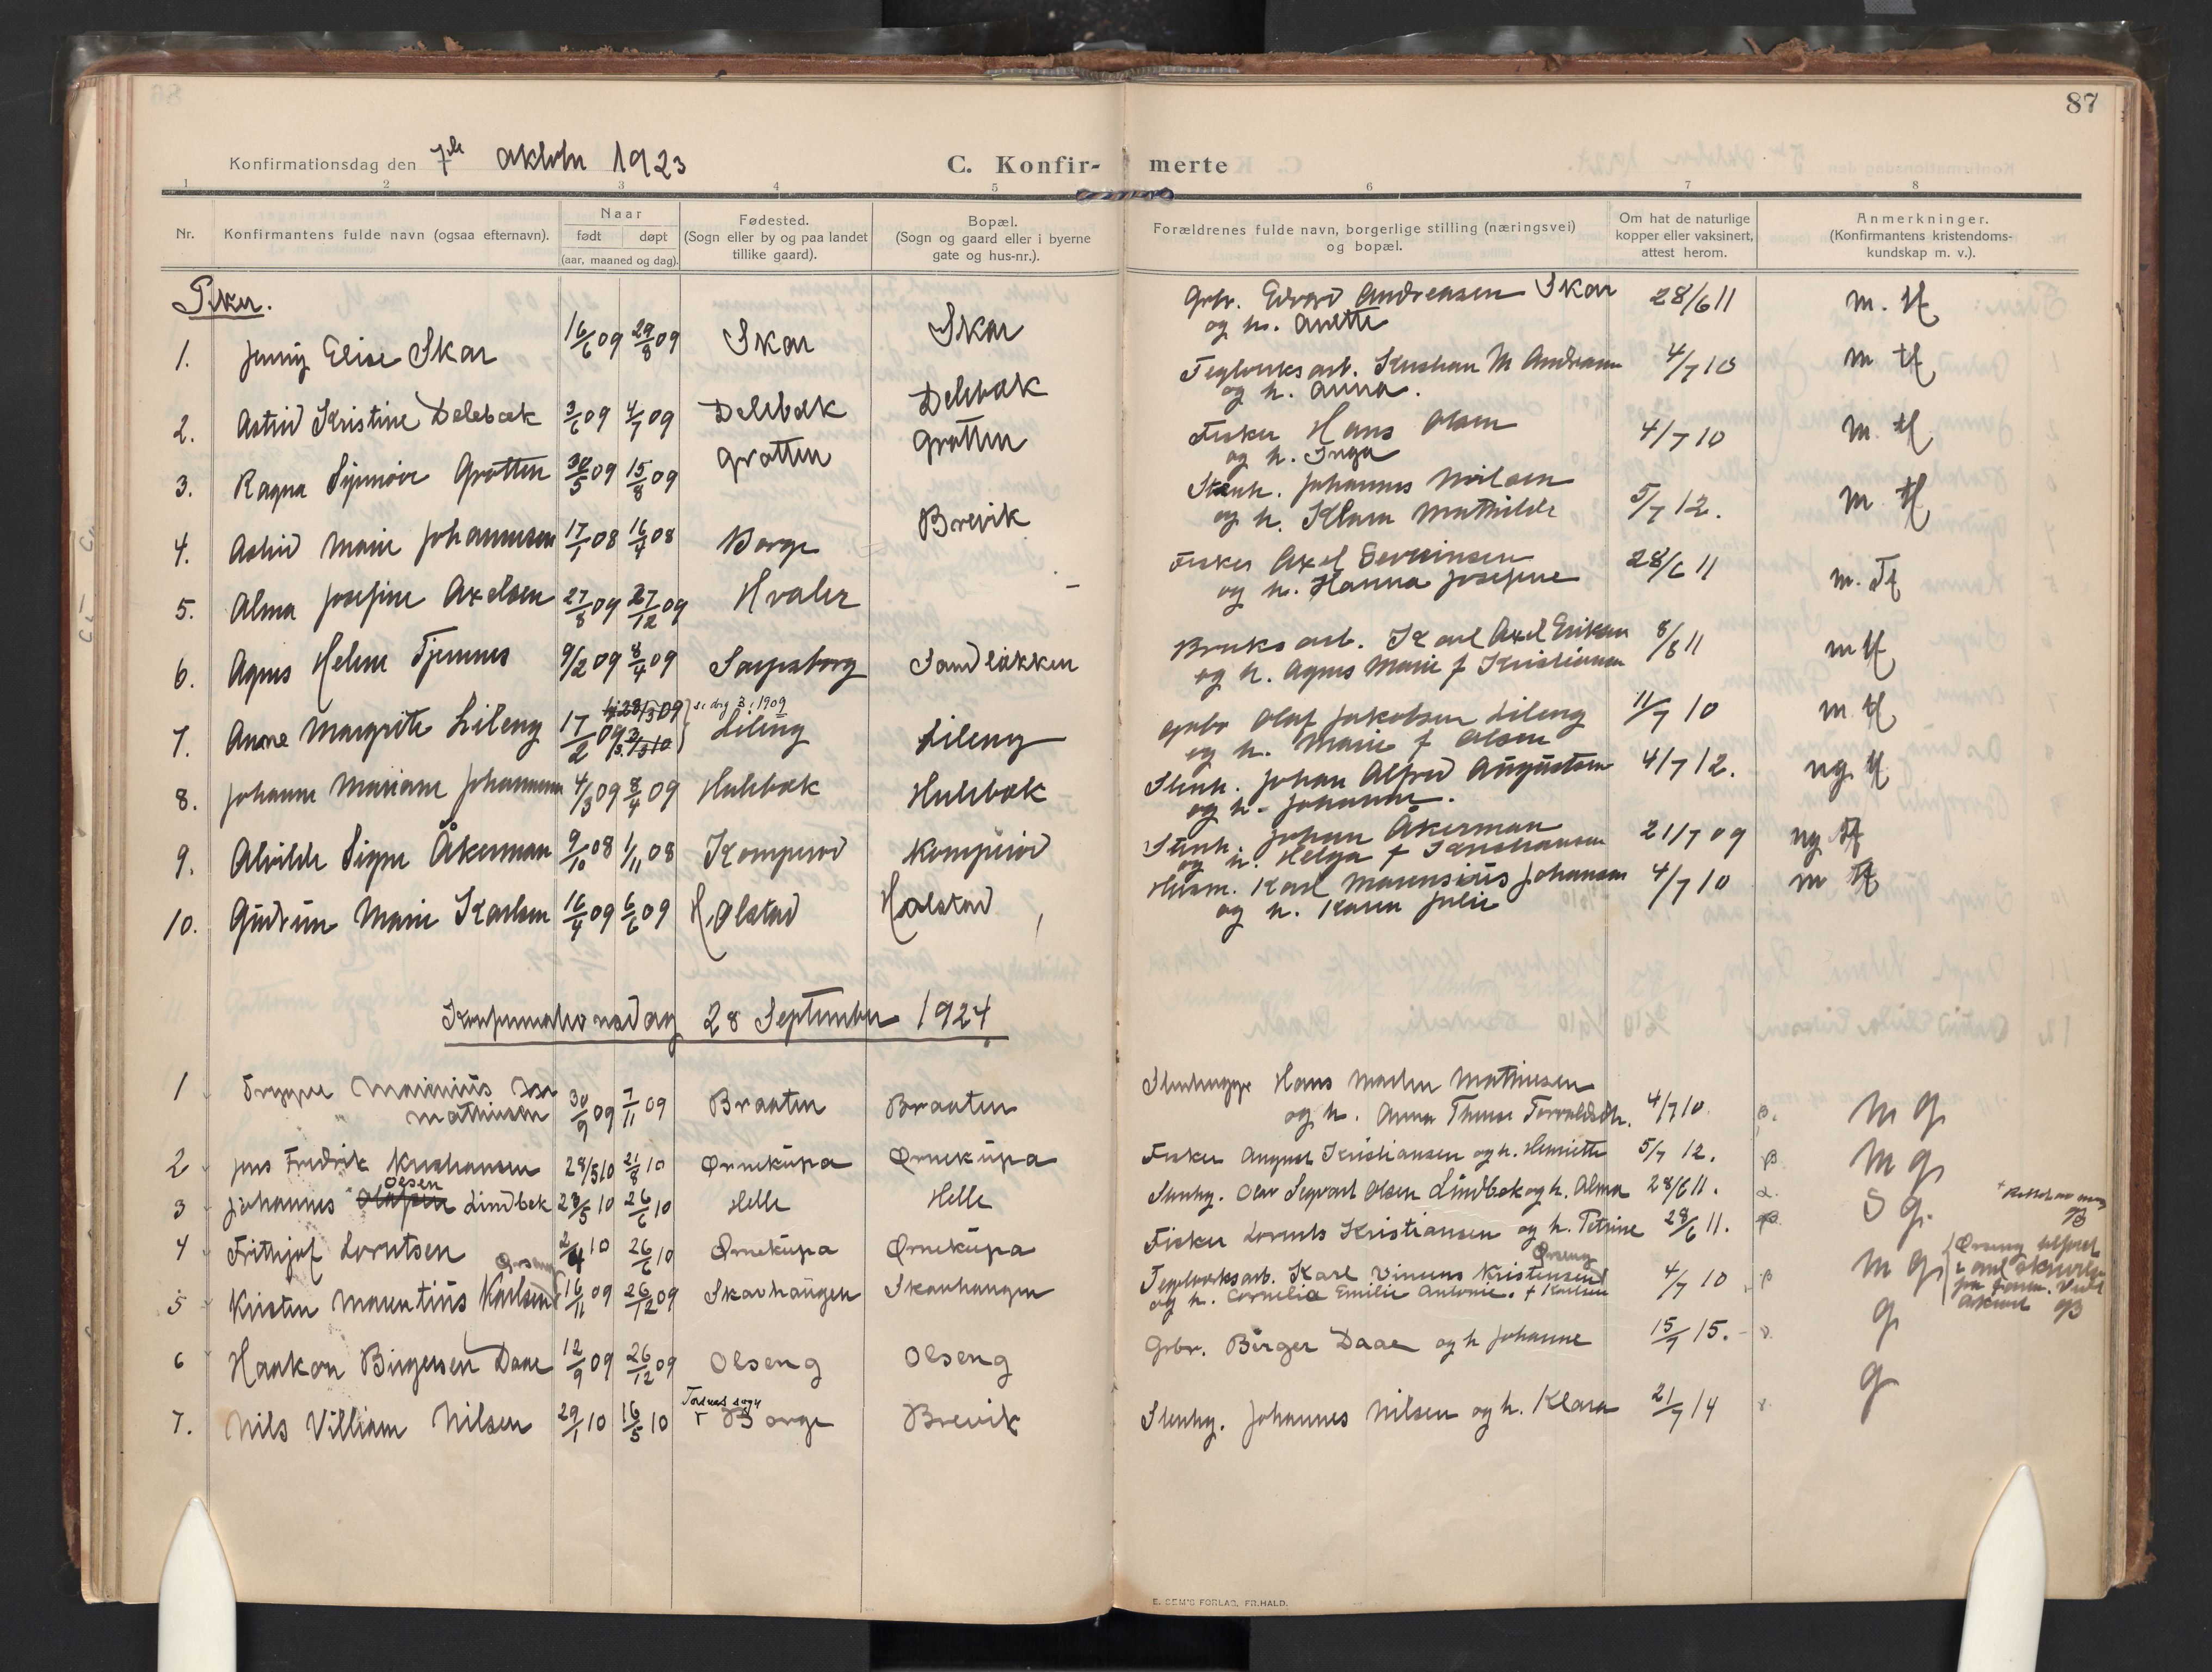 87
Konfirmationsdag den 7de oktober 1923
C. Konfir- merte
1 2 3 4 5 6 7 8
Nr.
Konfirmantens fulde navn (ogsaa efternavn).
Naar
født døpt
(aar, maaned og dag).
Fødested.
(Sogn eller by og paa landet
tillike gaard).
Bopæl.
(Sogn og gaard eller i byerne
gate og hus-nr.).
Forældrenes fulde navn, borgerlige stilling (næringsvei)
og bopæl.
Om hat de naturlige
kopper eller vaksinert,
attest herom.
Anmerkninger.
(Konfirmantens kristendoms-
kundskap m. v.).
Piker.
1. Jenny Elise Skar 16/6 09 29/8 09 Skar Skar Grbr. Edvard Andreasen Skar 28/6 11 m. tf
og h. Anette
2. Astrid Kristine Delebæk 3/6 09 4/7 09 Delebæk Delebæk Teglverksarb. Kristian M Andreasen 4/7 10 m tf
og h. Anna.
3. Ragna Synnøve Grøtten 30/5 09 15/8 09 Grøtten Grøtten Fisker Hans Olsen 4/7 10 m. tf
og h. Inga
4. Astrid Marie Johannesen 17/1 08 16/4 08 Borge Brevik Stenh. Johannes Nilsen 5/7 12. m tf
og h. Klara Mathilde
5. Alma Josefine Axelsen 27/8 09 27/12 09 Hvaler - Fisker Axel Severinsen 28/6 11 m. tf
og h. Hanna Josefine
6. Agnes Helene Tjernes 9/2 09 8/4 09 Sarpsborg Sandløkken Bruksarb. Karl Axel Eriksen 8/6 11 m tf
og h. Agnes Marie f Kristiansen
7. Anne Margrethe Lileng 17/2 09 28/3 09 3/3 10 se dag 3 i 1909 Lileng Lileng Grbr Olaf Jakobsen Lileng 11/7 10 m tf
og h. Marie f Olsen
8. Johanne Mariane Johannesen 4/3 09 8/4 09 Hulebæk Hulebæk Stenh. Johan Alfred Augustsen 4/7 12. ng tf
og h. Johanne.
9. Alvilde Signe Åkerman 9/10 08 1/11 08 Komperød Komperød Stenh. Johan Åkerman 21/7 09 ng tf
og h. Helga f Kristiansen
10. Gudrun Marie Karlsen 16/4 09 6/6 09 Holstad Holstad Husm. Karl Marensius Johansen 4/7 10 m tf
og h. Karen Julie
Konfirmationsdag 28 September 1924
1 Trygve Marinius
Mathiesen 30/9 09 7/11 09 Braaten Braaten Stenhugge Hans Martin Mathiesen
og h. Anna Therese Torvaldsdtr. 4/7 10. m g
2 Jens Fredrik Kristiansen 28/5 10 21/8 10 Ørnekupa Ørnekupa Fisker August Kristiansen og h. Henriette 5/7 12. m g
3 Johannes Olsen Lindbek 23/5 10 26/6 10 Helle Helle Stenhg. Olav Segvart Olsen Lindbek og h. Alma 28/6 11. S g.
4 Frithjof Lorntsen 2/4 10 26/6 10 Ørnekupa Ørnekupa Fisker Lorents Kristiansen og h. Petrine 28/6 11.
5 Kristen Marentius Karlsen Ørseng 16/11 09 26/12 09 Skavhaugen Skavhaugen Teglverksarb. Karl Vinuns Kristensen Ørseng 4/7 10 m g
og h. Cornelia Emilie Antonie. f Karlsen
6 Haakon Birgersen Daae 12/9 09 26/12 09 Olseng Olseng Grbr. Birger Daae og h Johanne 15/7 15. g
7. Nils Villiam Nilsen 29/1 10 16/5 10 Torsnes sogn Borge Brevik Stenhg. Johannes Nilsen og h. Klara 21/7 14 g
E. SEM'S FORLAG, FR.HALD.